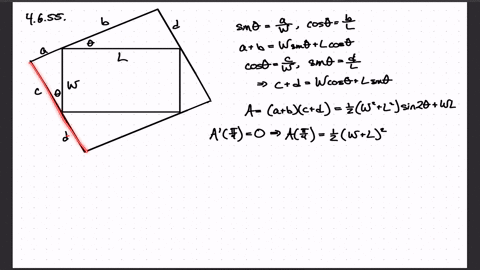 4.6.55.
a
b
d
θ
L
c
θ
W
d
sinθ = a/W, cosθ = b/L
a+b = Wsinθ+Lcosθ
cosθ = c/W, sinθ = d/L
⇒ c+d = Wcosθ+Lsinθ
A = (a+b)(c+d) = ½(W²+L²)sin2θ+WL
A'(π/4) = 0 ⇒ A(π/4) = ½(W+L)²